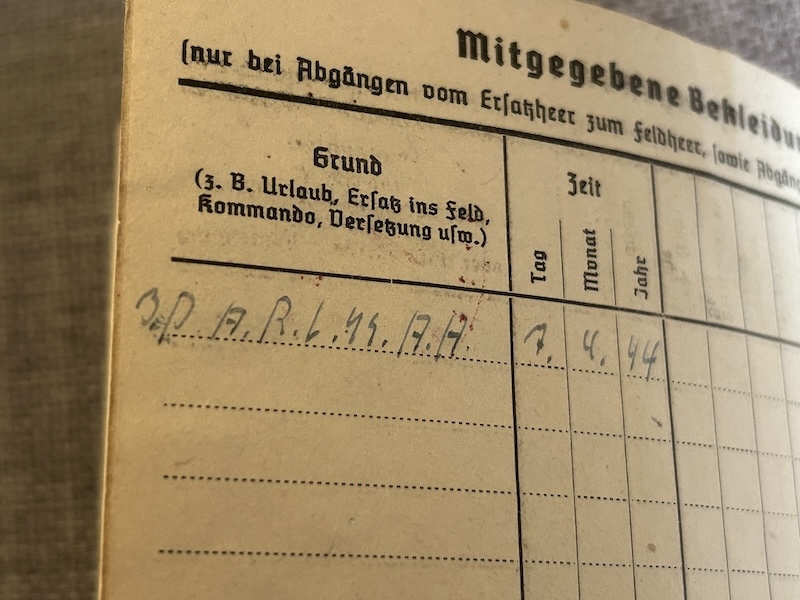 Mitgegebene Bekleidu
(nur bei Abgängen vom Ersatzheer zum Feldheer, sowie Abgäng
Grund
(z. B. Urlaub, Ersatz ins Feld,
Kommando, Versetzung usw.)
Zeit
Tag
Monat
Jahr
A. R. 7. 4. 44